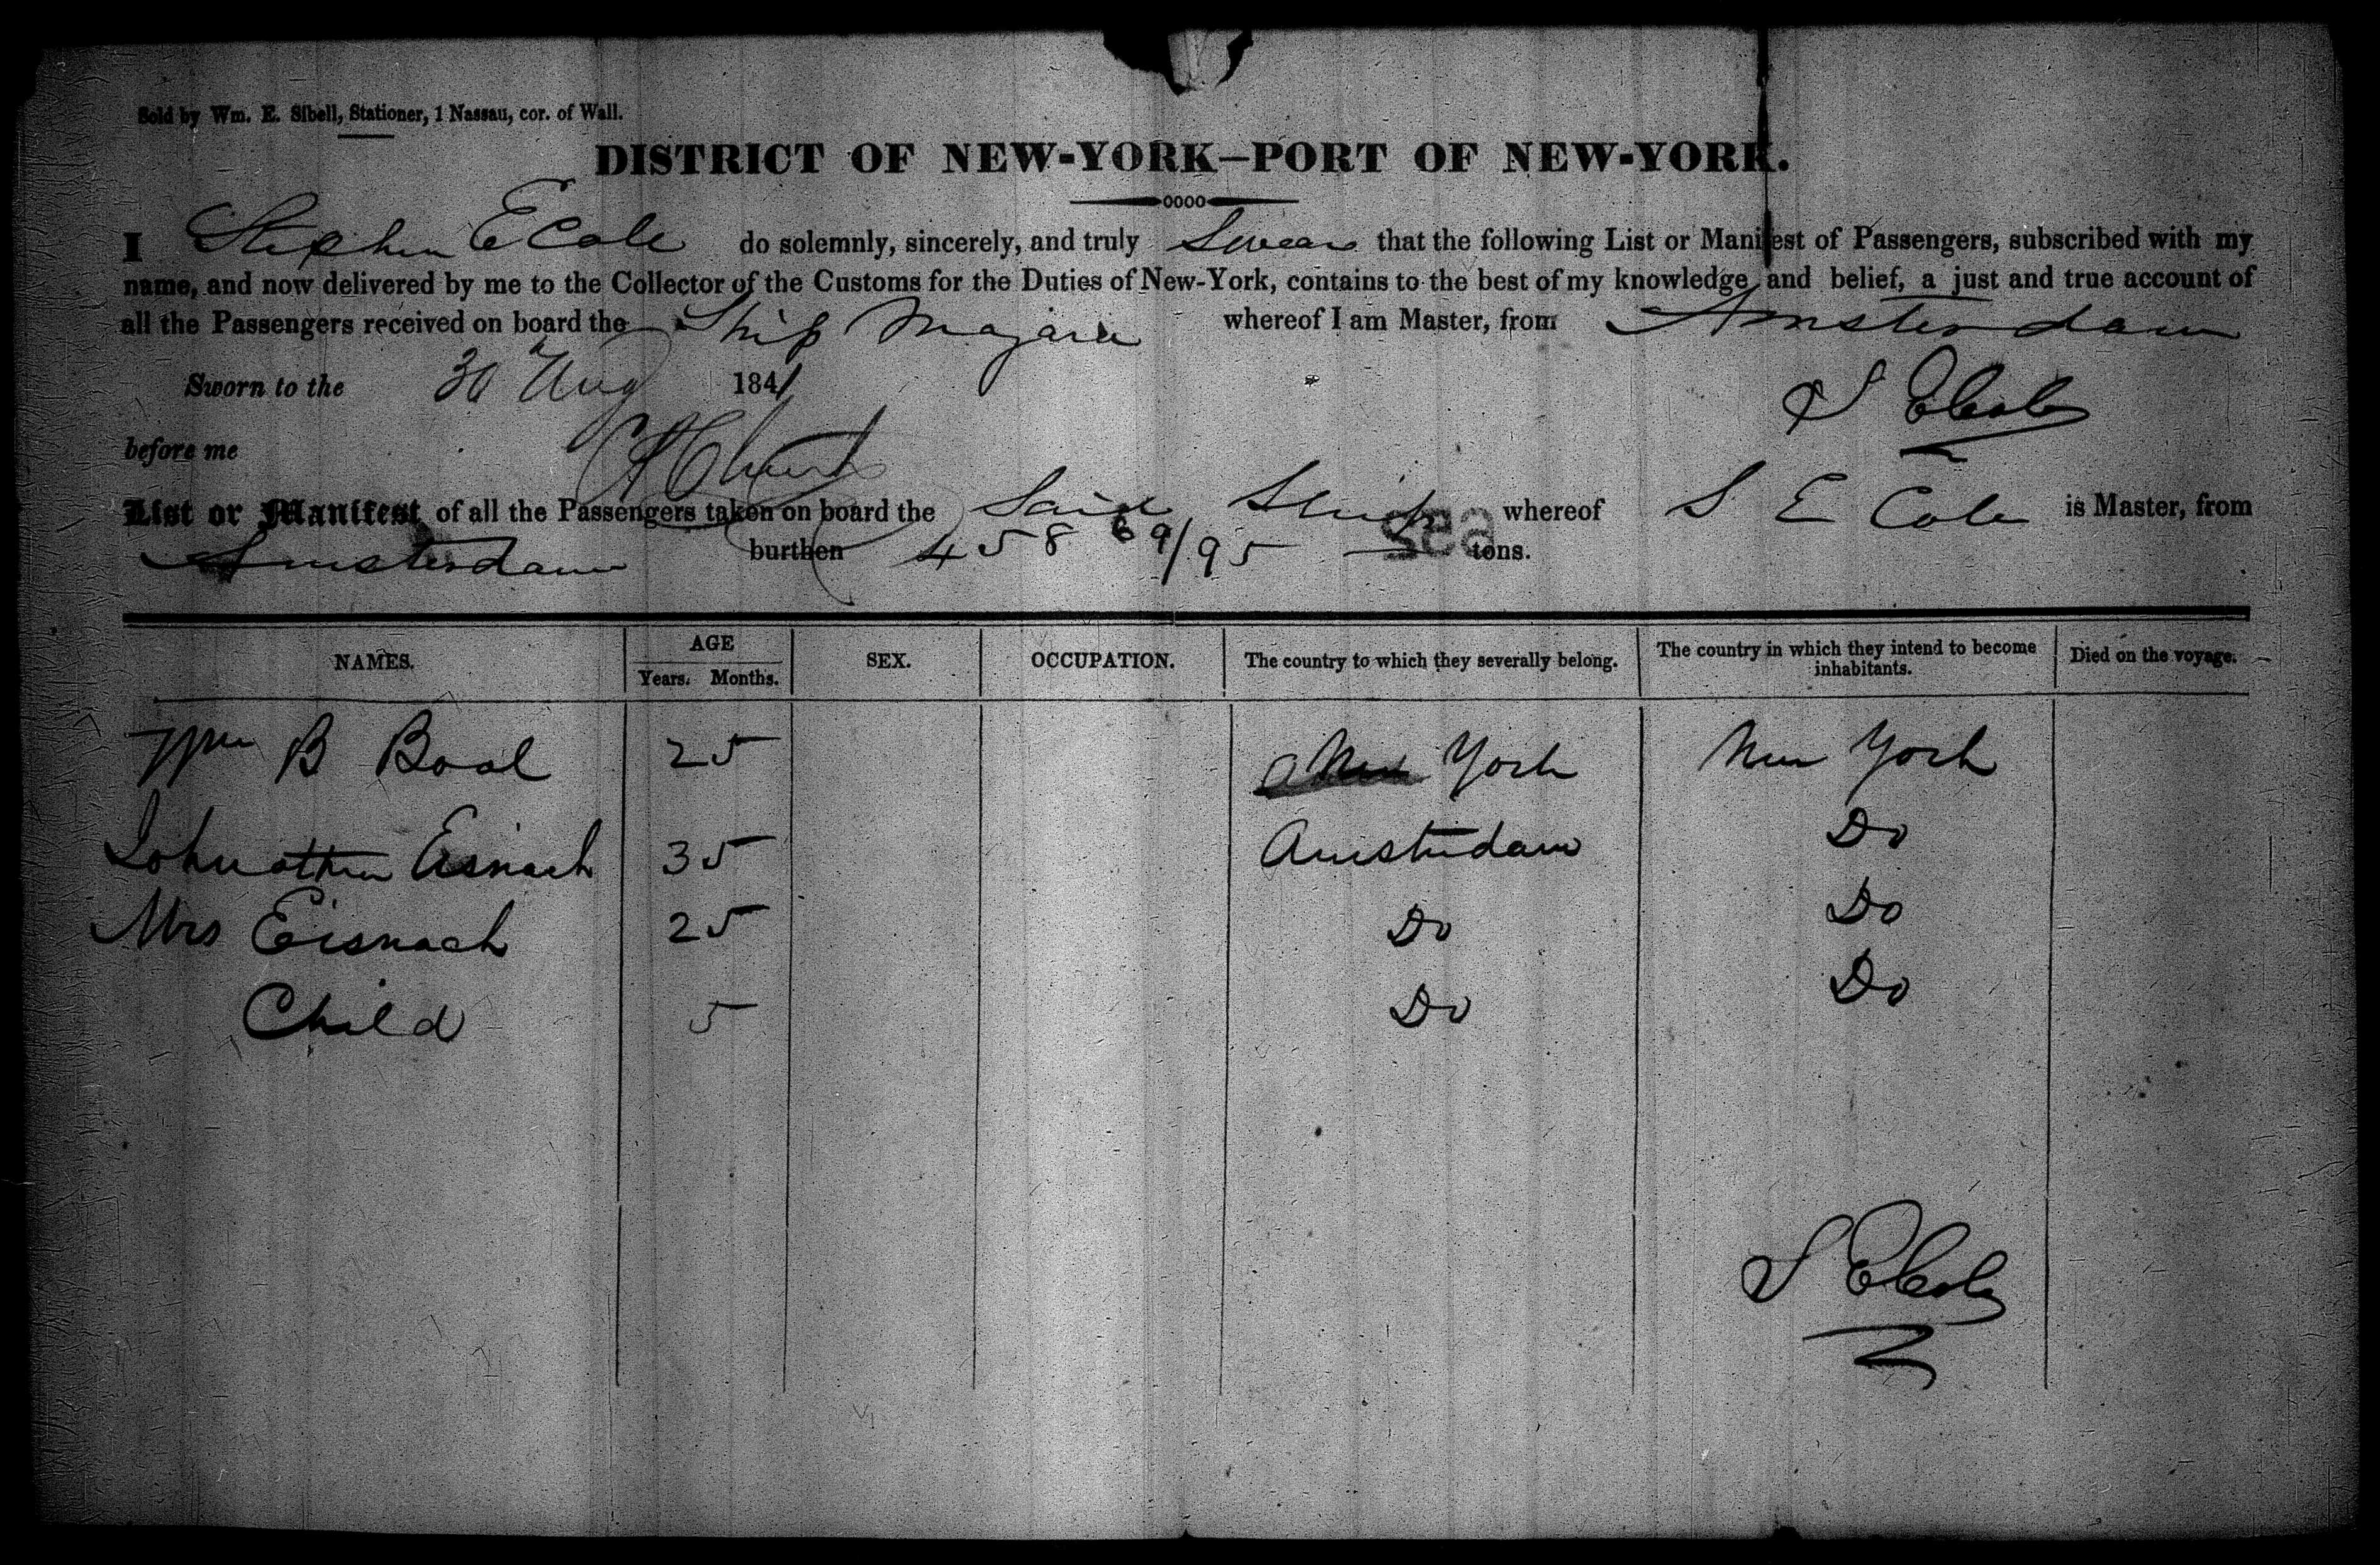 Sold by Wm. E. Sibell, Stationer, 1 Nassau, cor. of Wall.
DISTRICT OF NEW-YORK—PORT OF NEW-YORK.
I Stephen E Cole do solemnly, sincerely, and truly Swear that the following List or Manifest of Passengers, subscribed with my
name, and now delivered by me to the Collector of the Customs for the Duties of New-York, contains to the best of my knowledge and belief, a just and true account of
all the Passengers received on board the Ship whereof I am Master, from Amsterdam
Sworn to the 30 Aug 1841
S E Cole
before me
List or Manifest of all the Passengers taken on board the Said Ship whereof S E Cole is Master, from
Amsterdam burthen 458 69/95 tons.
sea
NAMES. AGE SEX. OCCUPATION. The country to which they severally belong. The country in which they intend to become inhabitants. Died on the voyage.
Years. Months.
Wm B Bool 25 New York New York
Johnathan Eisnach 35 Amsterdam Do
Mrs Eisnach 25 Do Do
Child 5 Do Do
S E Cole